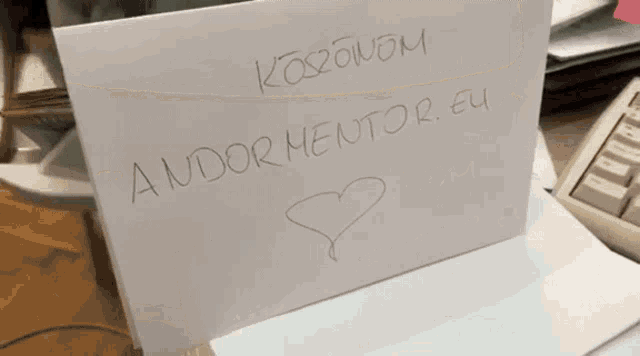 KÖSZÖNÖM
ANDORMENTOR.EU